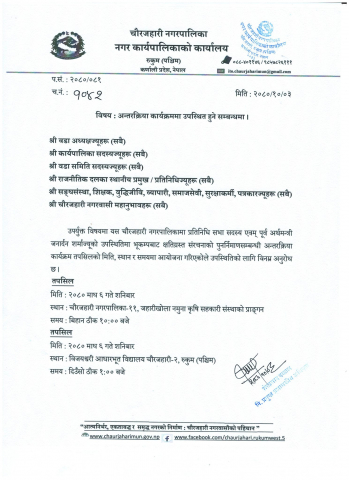 चौरजहारी नगरपालिका
नगर कार्यपालिकाको कार्यालय
रुकुम (पश्चिम)
कर्णाली प्रदेश, नेपाल
ito.chaurjaharimun@gmail.com
प.सं. : २०८०/०८१
च.नं. : १०४२
मिति : २०८०/१०/०३
विषय : अन्तरक्रिया कार्यक्रममा उपस्थित हुने सम्बन्धमा ।
श्री वडा अध्यक्षज्यूहरू (सबै)
श्री कार्यपालिका सदस्यज्यूहरू (सबै)
श्री वडा समिति सदस्यज्यूहरू (सबै)
श्री राजनीतिक दलका स्थानीय प्रमुख / प्रतिनिधिज्यूहरू (सबै)
श्री सङ्घसंस्था, शिक्षक, वुद्धिजीवि, व्यापारी, समाजसेवी, सुरक्षाकर्मी, पत्रकारज्यूहरू (सबै)
श्री चौरजहारी नगरवासी महानुभावहरू (सबै)
उपर्युक्त विषयमा यस चौरजहारी नगरपालिकामा प्रतिनिधि सभा सदस्य एवम् पूर्व अर्थमन्त्री
जनार्दन शर्माज्यूको उपस्थितिमा भूकम्पबाट क्षतिग्रस्त संरचनाको पुनर्निर्माणसम्बन्धी अन्तरक्रिया
कार्यक्रम तपसिलको मिति, स्थान र समयमा आयोजना गरिएकोले उपस्थितिको लागि विनम्र अनुरोध
छ ।
तपसिल
मिति : २०८० माघ ६ गते शनिबार
स्थान : चौरजहारी नगरपालिका-११, जहारीखोला नमुना कृषि सहकारी संस्थाको प्राङ्गन
समय : बिहान ठीक १०:०० बजे
तपसिल
मिति : २०८० माघ ६ गते शनिबार
स्थान : विजयश्वरी आधारभूत विद्यालय चौरजहारी-२, रुकुम (पश्चिम)
समय : दिउँसो ठीक १:०० बजे
"आत्मनिर्भर, एकताबद्ध र समृद्ध नगरको निर्माण : चौरजहारी नगरवासीको पहिचान "
www.chaurjaharimun.gov.np www.facebook.com/chaurjahari.rukumwest.5